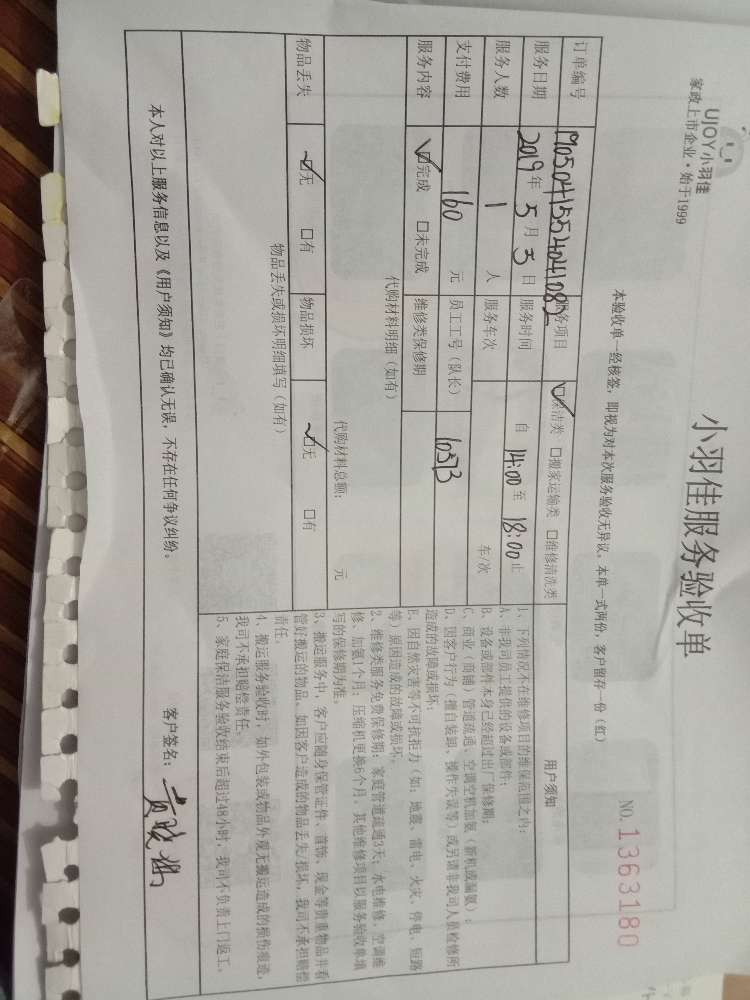 UJOY小羽佳
家政上市企业·始于1999
小羽佳服务验收单
NO. 1363180
本验收单一经核签，即视为对本次服务验收无异议，本单一式两份，客户留存一份（红）
订单编号 服务项目 ☑保洁类 □搬家运输类 □维修清洗类
服务日期 2019年5月5日 服务时间 自 14:00 至 18:00 止
服务人数 1 人 服务车次 车/次
支付费用 160 元 员工工号（队长） 10373
服务内容 ☑完成 □未完成 维修类保修期
代购材料明细（如有）
代购材料总额： 元
物品丢失 ☑无 □有 物品损坏 ☑无 □有
物品丢失或损坏明细填写（如有）
用户须知
1、下列情况不在维修项目的维保范围之内：
A、非我司员工提供的设备或部件；
B、设备或部件本身已经超过出厂保修期；
C、商业（商铺）管道疏通、空调空机加氨（新机或漏氨）；
D、因客户行为（擅自装卸、操作失误等）或另请非我司人员检修所
造成的故障或损坏；
E、因自然灾害等不可抗拒力（如：地震、雷电、火灾、停电、短路
等）原因造成的故障或损坏。
2、维修类服务免费保修期：家庭管道疏通3天；水电维修、空调维
修、加氨1个月；压缩机更换6个月，其他维修项目以服务验收单填
写的保修期为准。
3、搬运服务中，客户应随身保管证件、首饰、现金等贵重物品并看
管好搬运的物品，如因客户造成的物品丢失/损坏，我司不承担赔偿
责任。
4、搬运服务验收时，如外包装或物品外观无搬运造成的损伤痕迹，
我司不承担赔偿责任。
5、家庭保洁服务验收结束后超过48小时，我司不负责上门返工。
本人对以上服务信息以及《用户须知》均已确认无误，不存在任何争议纠纷。
客户签名：